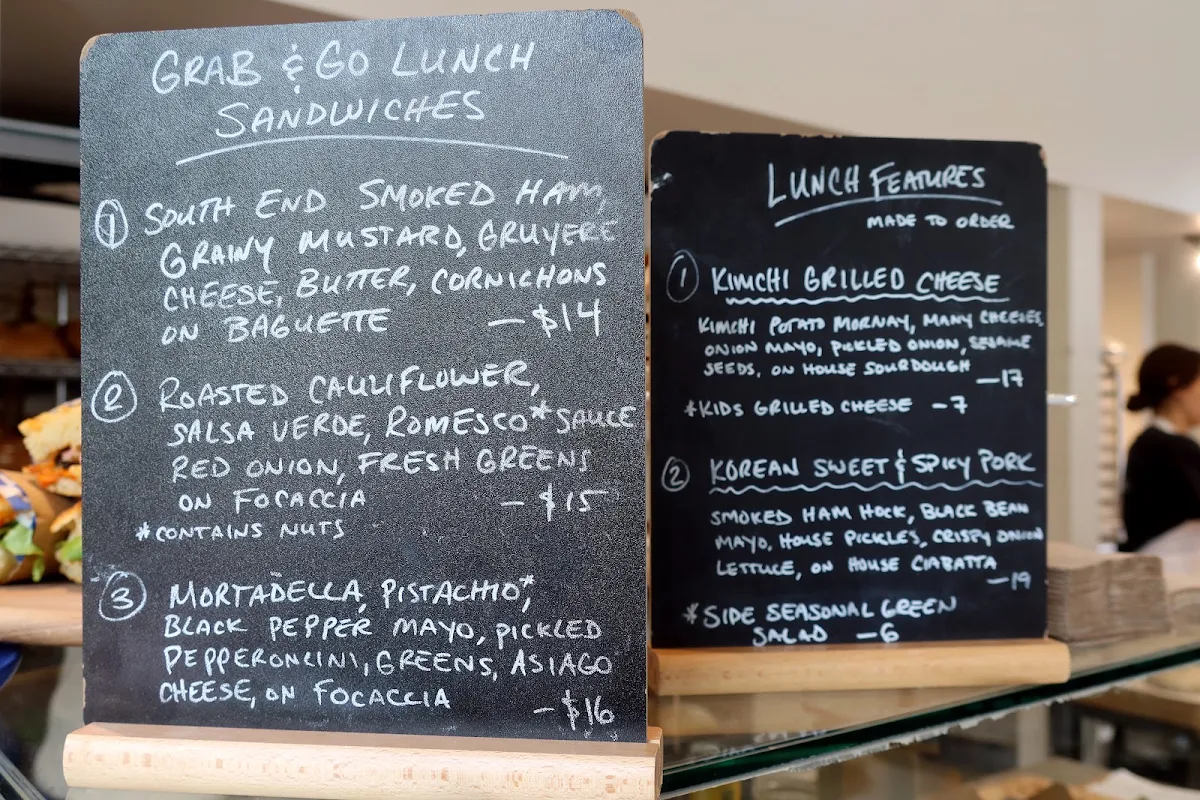 GRAB & GO LUNCH
SANDWICHES
① SOUTH END SMOKED HAM,
GRAINY MUSTARD, GRUYERE
CHEESE, BUTTER, CORNICHONS
ON BAGUETTE —$14
② ROASTED CAULIFLOWER,
SALSA VERDE, ROMESCO* SAUCE
RED ONION, FRESH GREENS
ON FOCACCIA —$15
*CONTAINS NUTS
③ MORTADELLA, PISTACHIO*,
BLACK PEPPER MAYO, PICKLED
PEPPERONCINI, GREENS, ASIAGO
CHEESE, ON FOCACCIA
—$16
LUNCH FEATURES
MADE TO ORDER
① KIMCHI GRILLED CHEESE
KIMCHI POTATO MORNAY, MANY CHEESES,
ONION MAYO, PICKLED ONION, SESAME
SEEDS, ON HOUSE SOURDOUGH
—17
*KIDS GRILLED CHEESE —7
② KOREAN SWEET & SPICY PORK
SMOKED HAM HOCK, BLACK BEAN
MAYO, HOUSE PICKLES, CRISPY ONION
LETTUCE, ON HOUSE CIABATTA
—19
*SIDE SEASONAL GREEN
SALAD —6